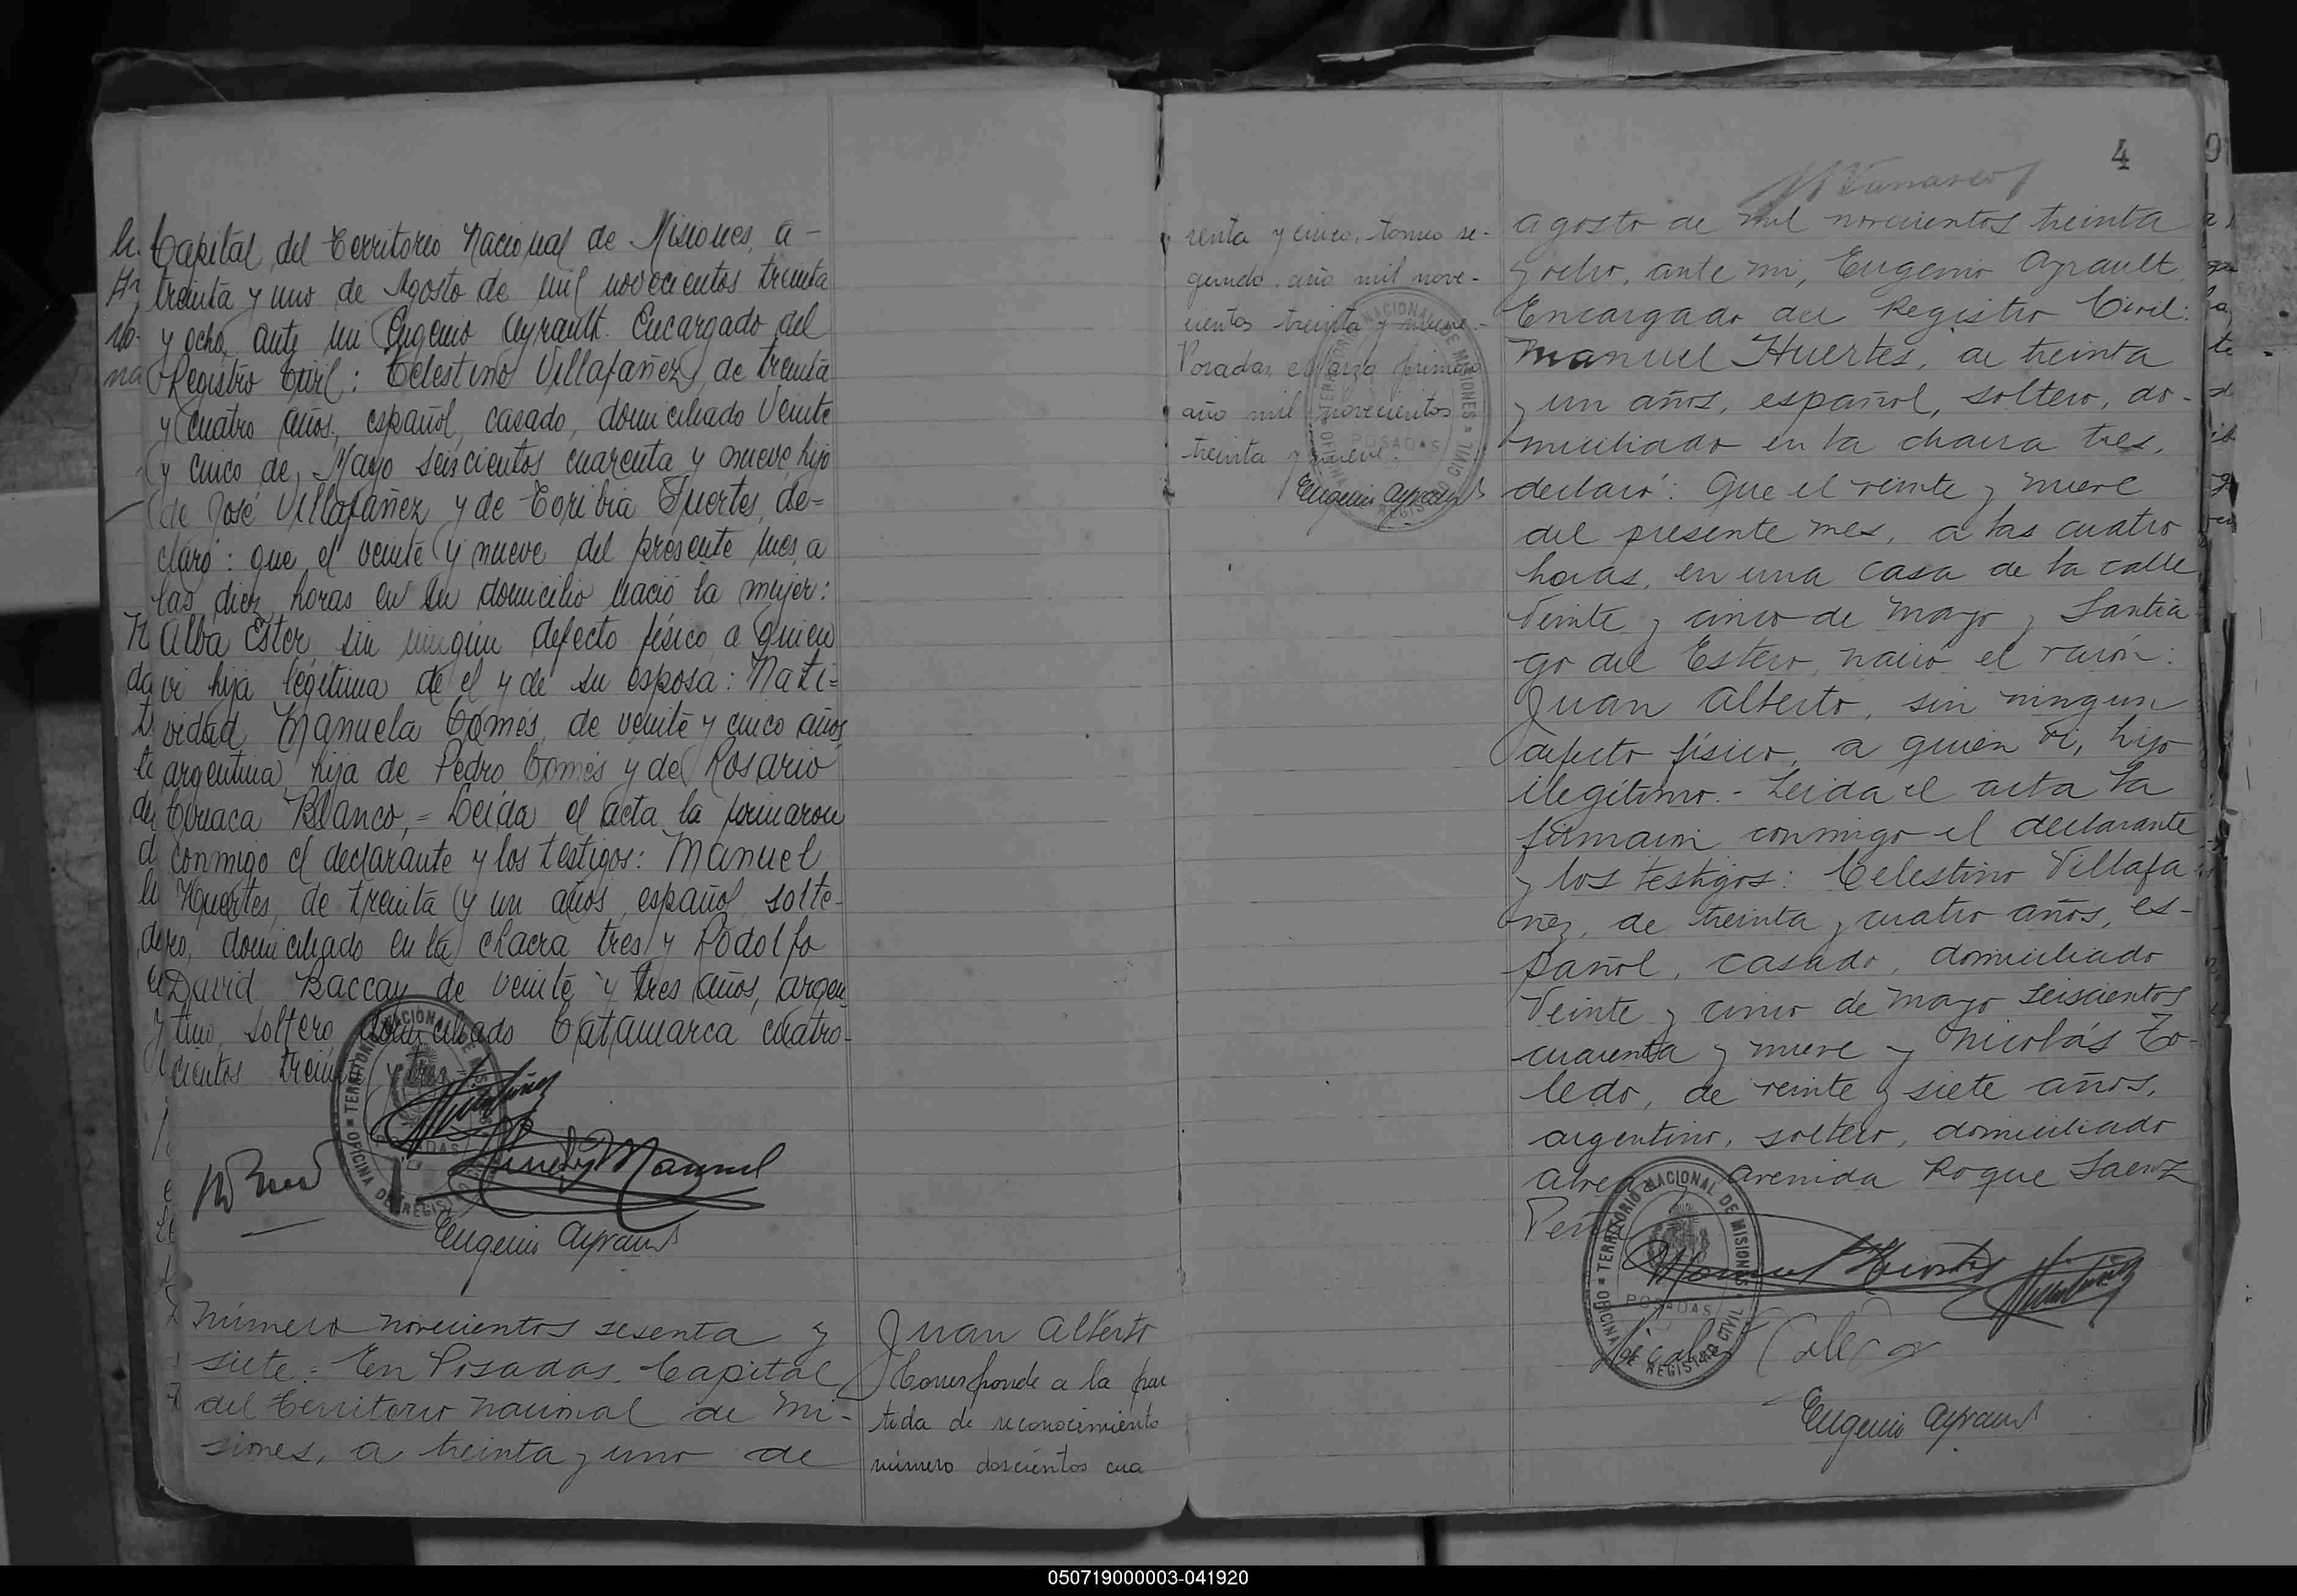 Capital del Territorio Nacional de Misiones, a
treinta y uno de Agosto de mil novecientos treinta
y ocho, ante mi Eugenio Ayrault. Encargado del
Registro Civil: Celestino Villafañez, de treinta
y cuatro años, español, casado, domiciliado Veinte
y cinco de Mayo seiscientos cuarenta y nueve, hijo
de José Villafañez y de Toribia Fuertes, de=
claró: que el veinte y nueve del presente mes, a
las diez horas en su domicilio nació la mujer:
Alba Ester, sin ningún defecto físico, a quien
vi hija legítima de el y de su esposa: Nati=
vidad Manuela Comés, de veinte y cinco años,
argentina, hija de Pedro Comés y de Rosario
Blanco,= Leída el acta la firmaron
conmigo el declarante y los testigos: Manuel
Huertes, de treinta y un años, español, solte-
ro, domiciliado en la chacra tres y Rodolfo
David Baccay de veinte y tres años, argen
tino, soltero domiciliado Catamarca cuatro-
cientos treinta y tres
OFICINA DE REGISTRO CIVIL TERRITORIO NACIONAL DE MISIONES
POSADAS
Manuel
Eugenio Ayrault
Número novecientos sesenta y
siete.= En Posadas, Capital
del Territorio Nacional de Mi-
siones, a treinta y uno de
Juan Alberto
Corresponde a la par
tida de reconocimiento
número doscientos cua
renta y cinco, tomo se-
gundo, año mil nove-
cientos treinta y nueve.-
Posadas, Marzo primero
año mil novecientos
treinta y nueve.
OFICINA DE REGISTRO CIVIL TERRITORIO NACIONAL DE MISIONES
POSADAS
Eugenio Ayrault
4
agosto de mil novecientos treinta
y ocho, ante mi, Eugenio Ayrault,
Encargado del Registro Civil:
Manuel Huertes, de treinta
y un años, español, soltero, do-
miciliado en la chacra tres,
declaró: Que el veinte y nueve
del presente mes, a las cuatro
horas, en una casa de la calle
Veinte y cinco de Mayo y Santia
go del Estero, nació el varón:
Juan Alberto, sin ningun
defecto físico, a quien vi, hijo
ilegítimo.- Leida el acta la
firmaron conmigo el declarante
y los testigos: Celestino Villafa
ñez, de treinta y cuatro años, es-
pañol, casado, domiciliado
Veinte y cinco de Mayo seiscientos
cuarenta y nueve y Nicolás To-
ledo, de veinte y siete años,
argentino, soltero, domiciliado
Avenida Roque Saenz
Peña
OFICINA DE REGISTRO CIVIL TERRITORIO NACIONAL DE MISIONES
POSADAS
Manuel Huertes
Eugenio Ayrault
050719000003-041920